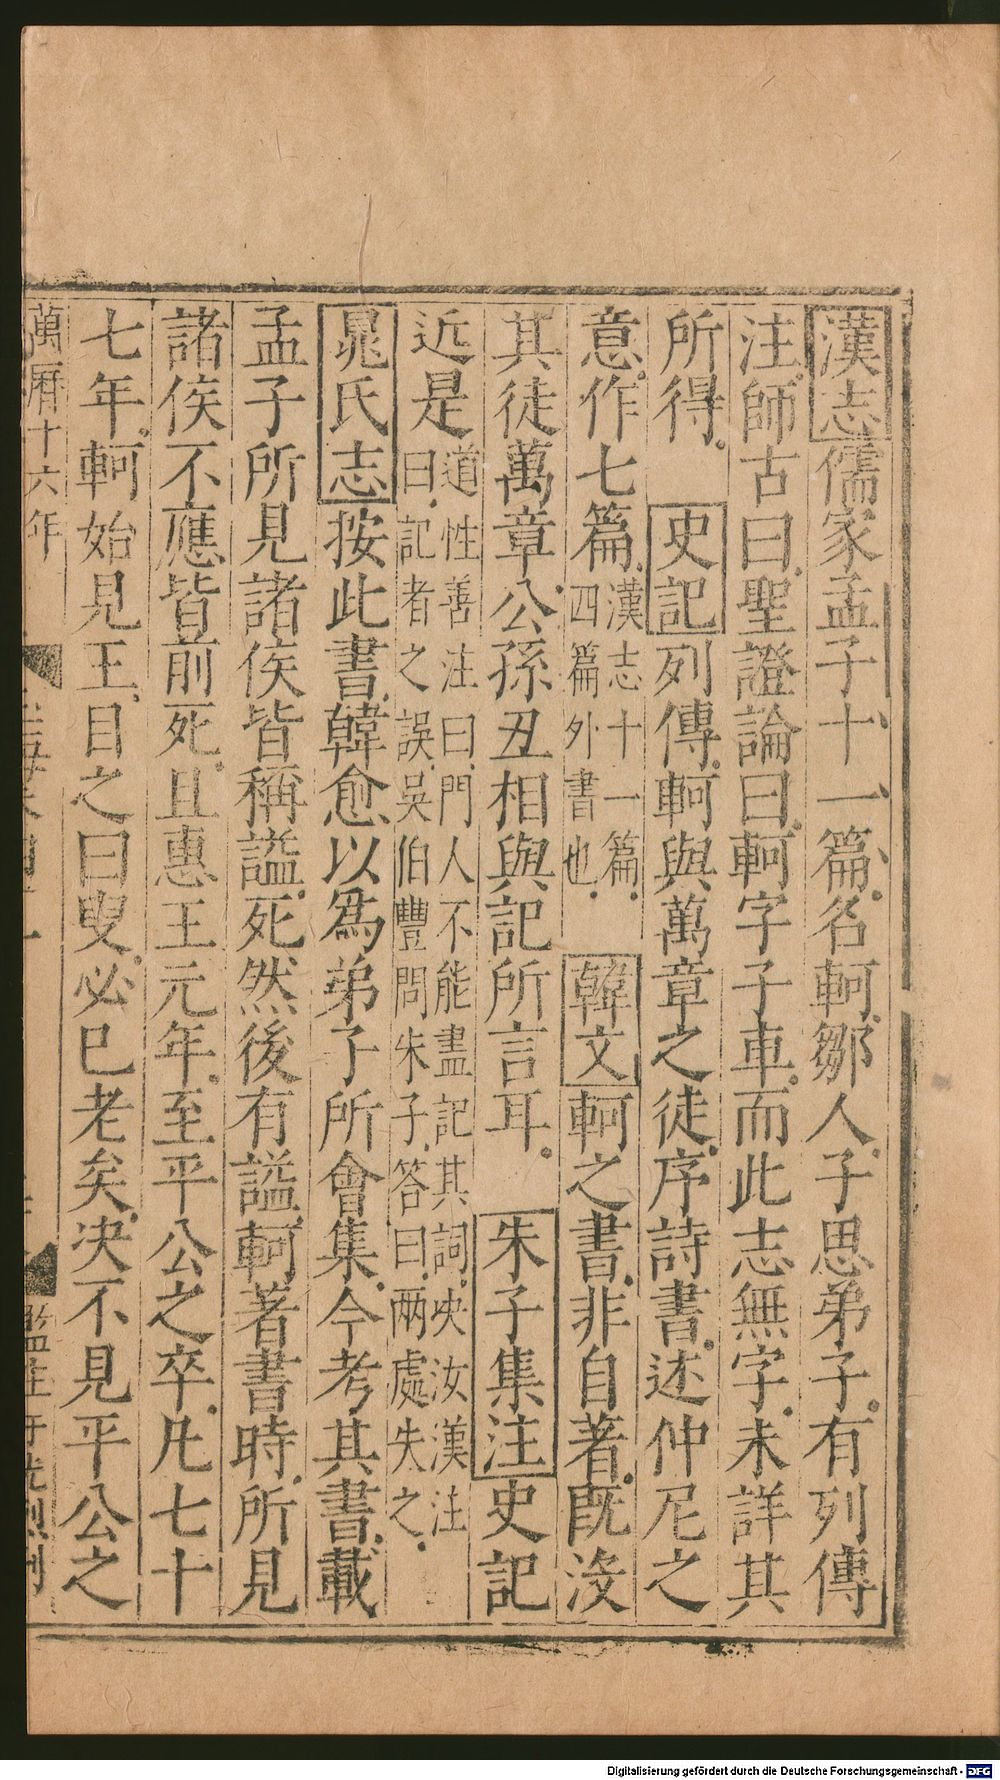 漢志儒家孟子十一篇名軻鄒人子思弟子有列傳
注師古曰聖證論曰軻字子車而此志無字未詳其
所得 史記列傳軻與萬章之徒序詩書述仲尼之
意作七篇漢志十一篇四篇外書也 韓文軻之書非自著旣沒
其徒萬章公孫丑相與記所言耳 朱子集注史記
近是道性善注曰門人不能盡記其詞決汝漢注曰記者之誤吳伯豐問朱子答曰兩處失之
晁氏志按此書韓愈以爲弟子所會集今考其書載
孟子所見諸侯皆稱謚死然後有謚軻著書時所見
諸侯不應皆前死且惠王元年至平公之卒凡七十
七年軻始見王目之曰叟必巳老矣決不見平公之
萬曆十六年
監生
刊
Digitalisierung gefördert durch die Deutsche Forschungsgemeinschaft - DFG